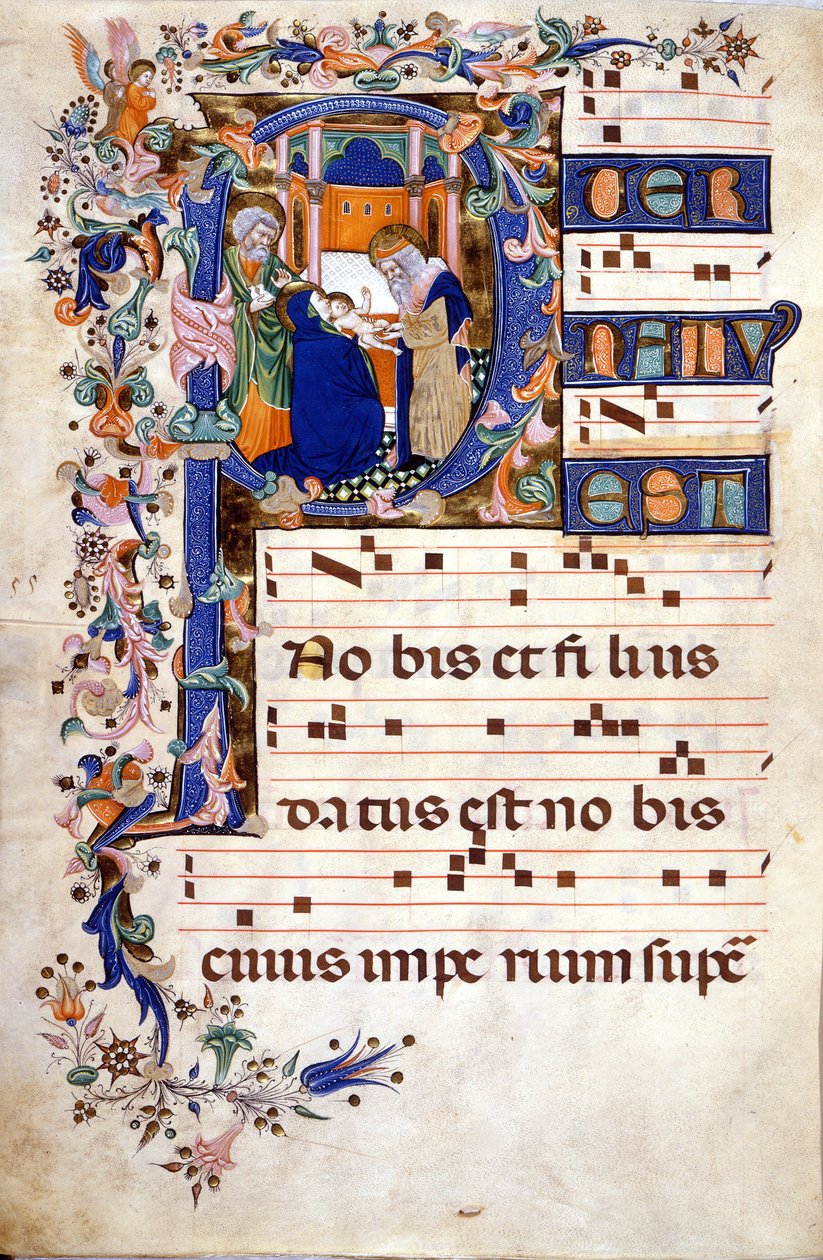 PUER
NATU
EST
No bis et fi lius
da tus est no bis
cuius impe rium supē
55